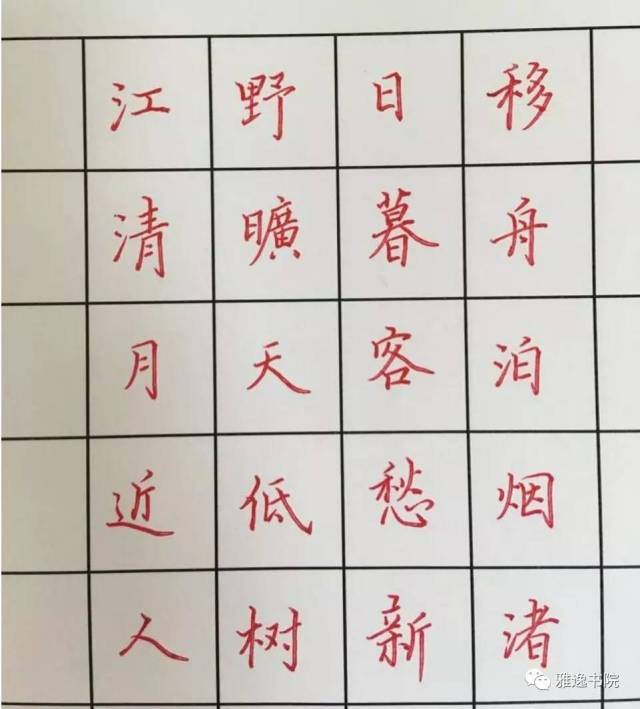 移舟泊烟渚
日暮客愁新
野曠天低树
江清月近人
雅逸书院